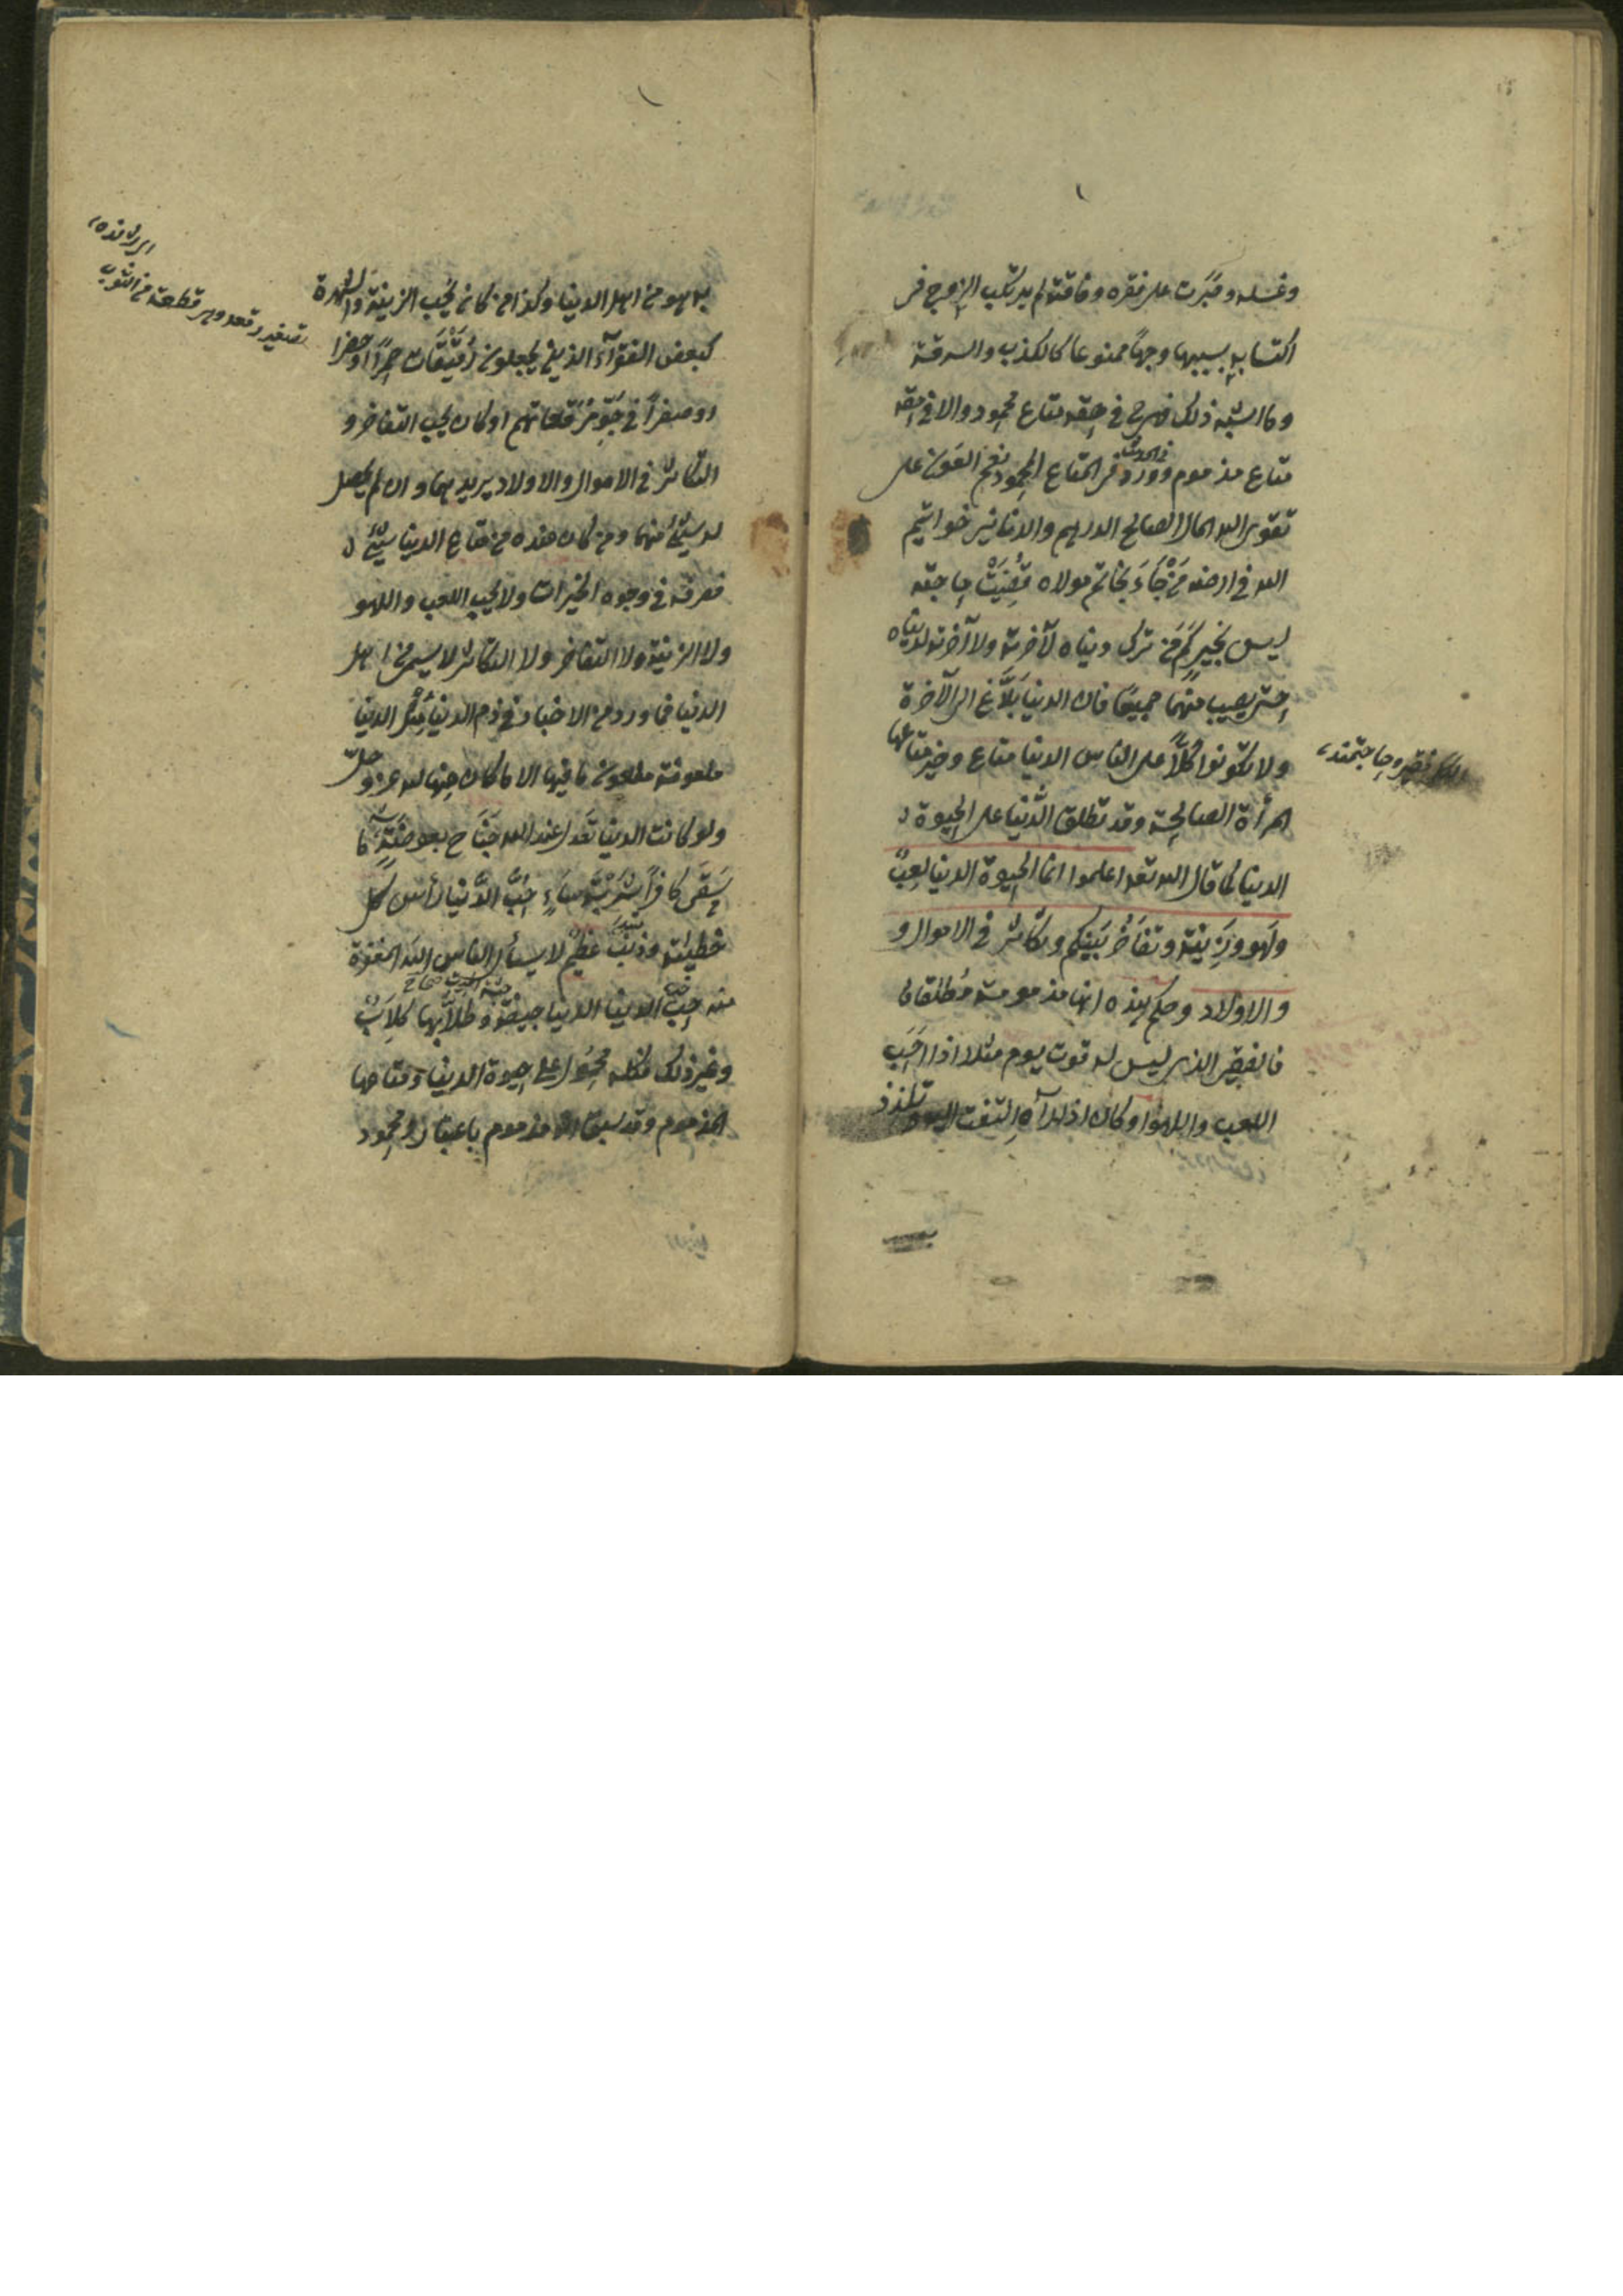 وغسله وصَبَرت على فقره وفاقته لم يرتكب الزوج فى
اكتسابه بسببها وجهاً ممنوعا كالكذب والسرقة
وما اشبه ذلك فهى فى حقه متاع محمود والا فى حقه
متاع مذموم وورد فى الحديث فى المتاع المحمود نعم العَون على
تقوى الله المال الصالح الدراهم والدنانير خواتيم
الله فى ارضه مَنْ جَاءَ بخاتم مولاه قُضِيَتْ حاجته
ليس بخيركم مَن ترك دنياه لآخرته ولا آخرته لدنياه
حتى يصيب منهما جميعًا فان الدنيا بَلَاغ الى الآخرة
ولا تكونوا كَلّاً على الناس الدنيا متاع وخير متاعها
المرأة الصالحة وقد تطلق الدّنيا على الحيوة
الدنيا كما قال الله تعه اعلموا انما الحيوة الدنيا لعِبٌ
ولَهو وزِينة وتفَاخُر بَينكم وتكاثر فى الاموال و
والاولاد وحكم هذه انها مذمومة مُطلقا
فالفقير الذى ليس له قوت يوم مثلا اذا احَبّ
اللعب واللهو او كان اذا رآه التفت اليه وتلذذ
الكل فقير وحاجتمند
به هو من اهل الدنيا وكذا من كان يُحب الزينة والشهرة
كبعض الفقرآء الذين يجعلون رُقَيْقَعات حمراً او خضرا
او صفراً فى مرقعاتهم او كان يحب التفاخر و
التكاثر فى الاموال والاولاد يريد بهما وان لم يحصل
له شئ منهما ومن كان عنده من متاع الدنيا شئ
فصرفه فى وجوه الخيرات ولا يحب اللعب واللهو
ولا الزينة ولا التفاخر ولا التكاثر لا يسمى من اهل
الدنيا فما ورد من الاخبار فى ذم الدنيا مِثْل الدنيا
ملعونة ملعون ما فيها الا ما كان منها لله عز وجلّ
ولو كانت الدنيا تَعدل عند الله جَنَاح بعوضَةٍ ما
سَقى كافراً شَرْبَةَ مَاءٍ حُبُّ الدُّنيا رأس كل
خطيئة وذنب عظيم لا يسأل الناس الله المغفرة
منه حبّ الدنيا الدنيا جيفة وطلّابها كلاَبٌ
وغير ذلك فكله محمول على حيوة الدنيا ومتاعها
المذموم وقد سبق انه مذموم باعتبار ومحمود
تصغير رقعه وهى قطعة من الثوب